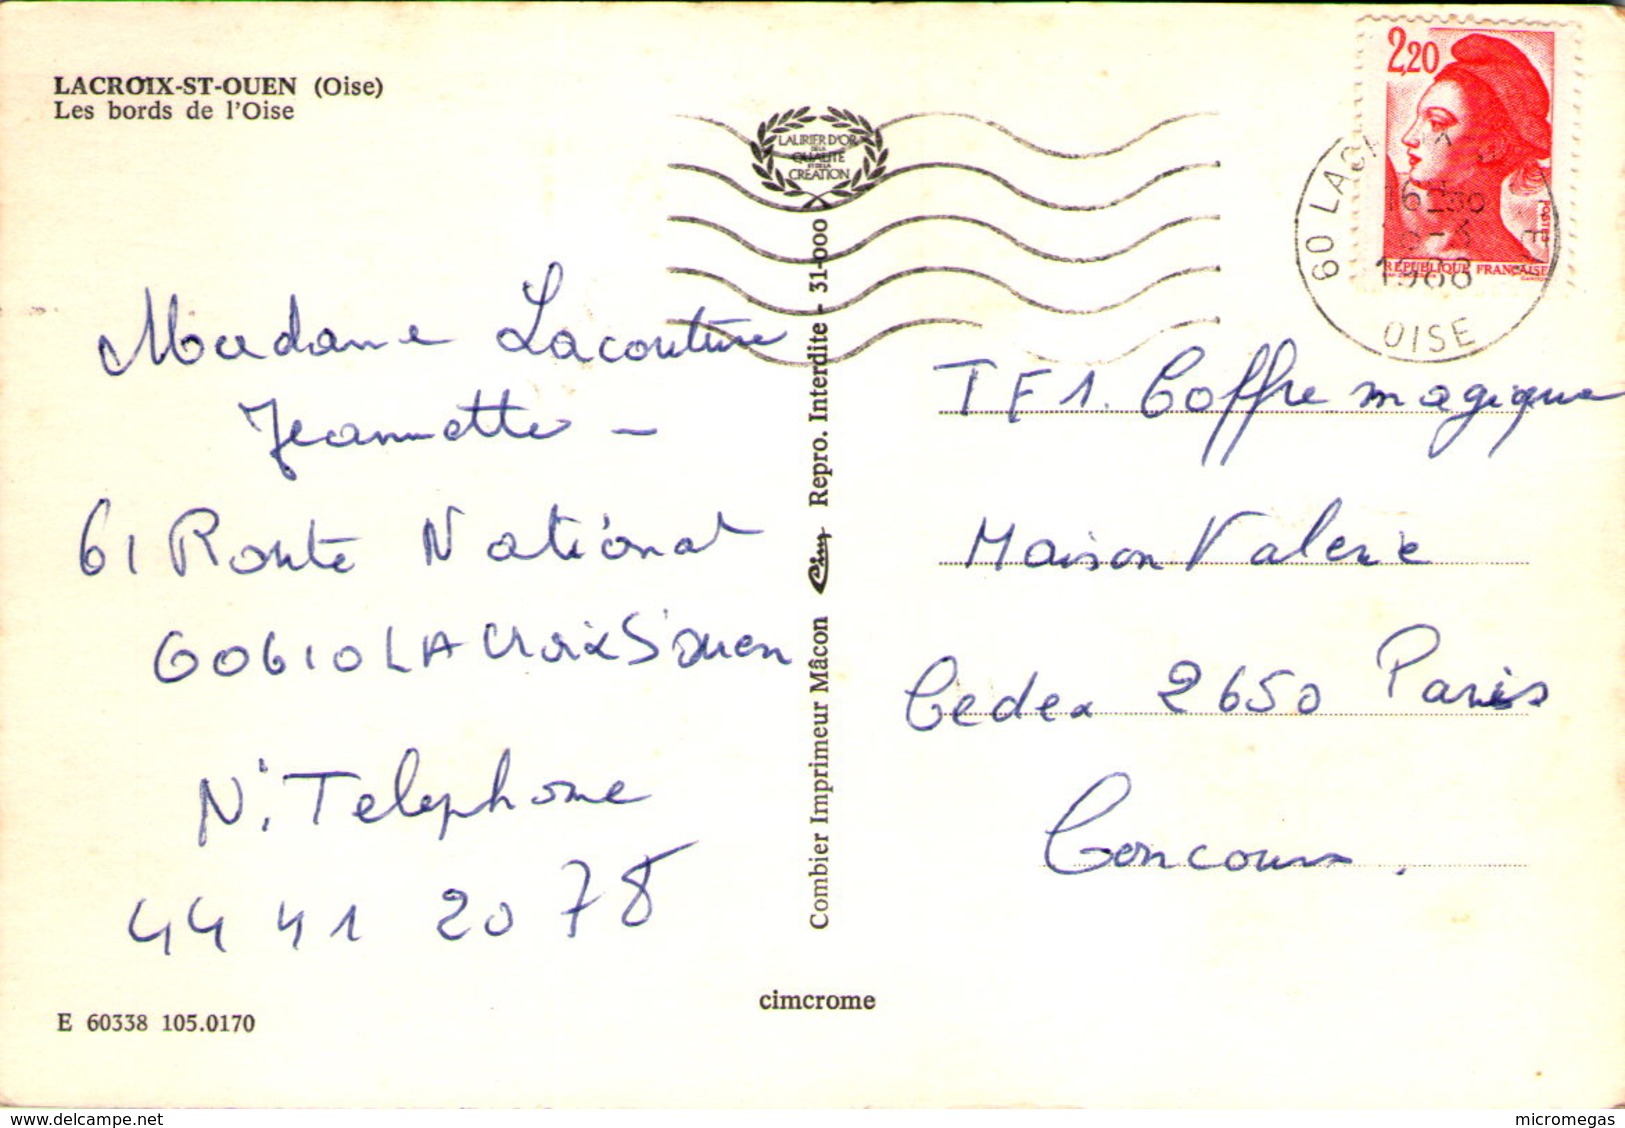 LACROIX-ST-OUEN (Oise)
Les bords de l'Oise
LAURIER D'OR
DE LA
QUALITÉ
ET DE LA
CRÉATION
2,20
POSTES
REPUBLIQUE FRANÇAISE
60
16
1988
OISE
Madame Lacouture
Jeannette -
61 Route National
60610 LA Croix St ouen
N°. Telephone
44 41 20 78
Combier Imprimeur Mâcon Cim Repro. Interdite - 31-000
TF1. Coffre magique
Maison Valerie
Cedex 2650 Paris
Concours.
cimcrome
E 60338 105.0170
delcampe.net
micromegas